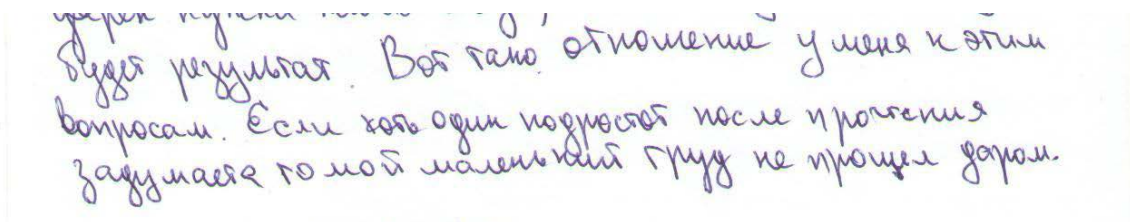 будет результат. Вот тако отношение у меня к этим
вопросам. Если хоть один подростот после прочтения
задумаета то мой маленький труд не прошел даром.